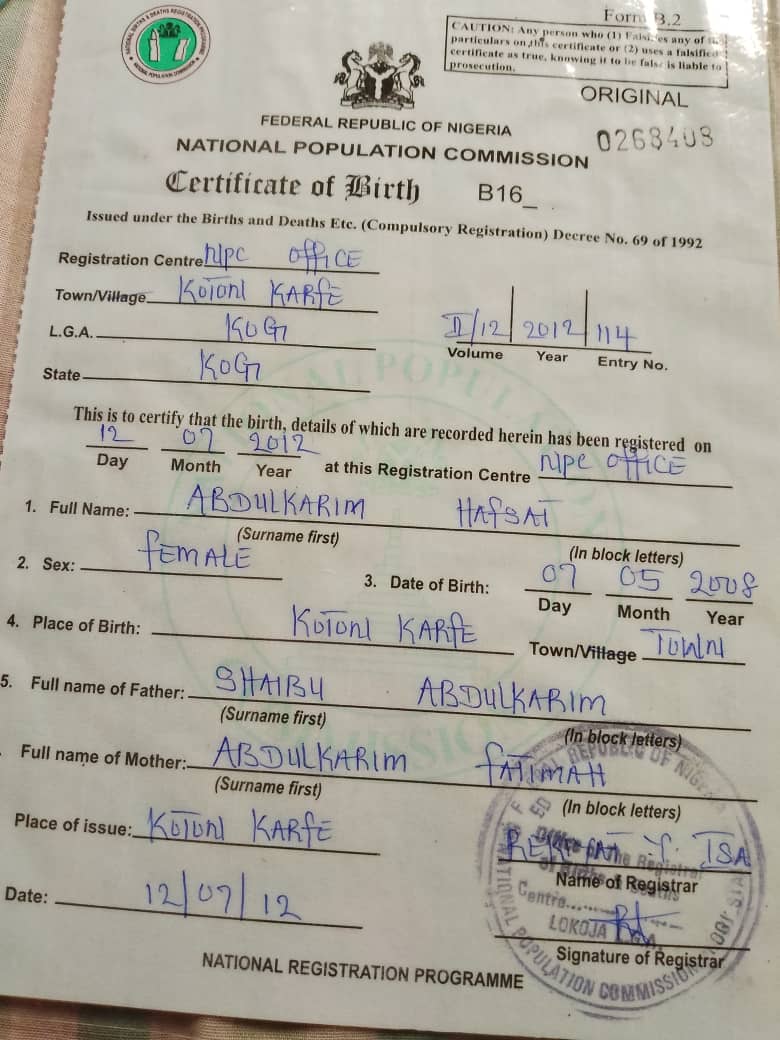 Form B.2
CAUTION: Any person who (1) Falsifies any of the
particulars on this certificate or (2) uses a falsified
certificate as true, knowing it to be false is liable to
prosecution.
ORIGINAL
0268408
FEDERAL REPUBLIC OF NIGERIA
NATIONAL POPULATION COMMISSION
Certificate of Birth B16_
Issued under the Births and Deaths Etc. (Compulsory Registration) Decree No. 69 of 1992
Registration Centre NPC OFFICE
Town/Village KOTONI KARFE
L.G.A. KOGI
State KOGI
II/12 2012 114
Volume Year Entry No.
This is to certify that the birth, details of which are recorded herein has been registered on
12 07 2012
Day Month Year at this Registration Centre NPC OFFICE
1. Full Name: ABDULKARIM HAFSAT
(Surname first) (In block letters)
2. Sex: FEMALE
3. Date of Birth: 07 05 2008
Day Month Year
4. Place of Birth: KOTONI KARFE Town/Village TOWN
5. Full name of Father: SHAIBU ABDULKARIM
(Surname first) (In block letters)
Full name of Mother: ABDULKARIM FATIMAH
(Surname first) (In block letters)
Place of issue: KOTONI KARFE
ISA
Name of Registrar
Date: 12/07/12
Signature of Registrar
LOKOJA
NATIONAL POPULATION COMMISSION
NATIONAL REGISTRATION PROGRAMME